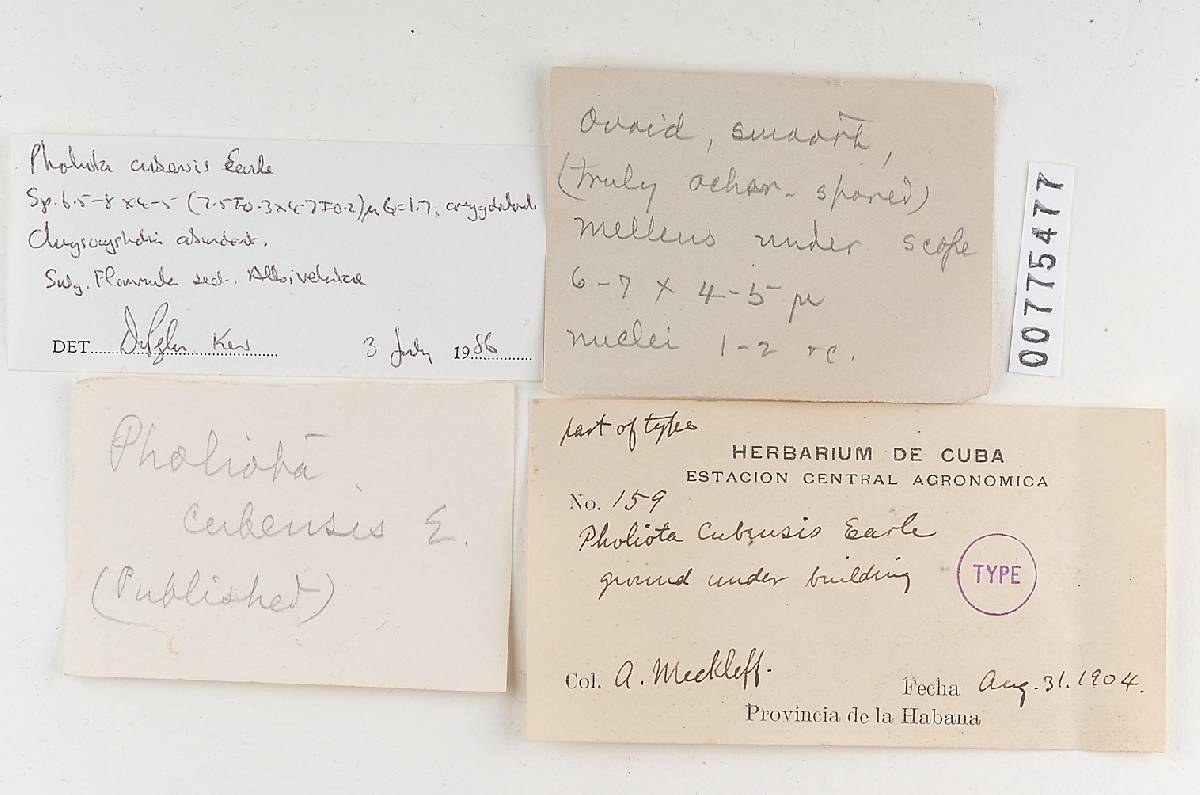 Pholiota cubensis Earle
Sp. 6.5-8 x 4-5 (7.5±0.3 x 4.7±0.2)µ Q=1.7,
Chrysocystidia abundant.
Subg. Flammula sect. Albivelatae
DET. Kew 3 July 1986
Ovoid, smooth,
(truly ochr-spored)
melleus under scope
6-7 x 4-5 µ
nuclei 1-2
00775477
Pholiota
cubensis E.
(Published)
part of type
HERBARIUM DE CUBA
ESTACION CENTRAL AGRONOMICA
No. 159
Pholiota Cubensis Earle
ground under building
TYPE
Col. A. Meckleff.
Fecha Aug. 31. 1904.
Provincia de la Habana